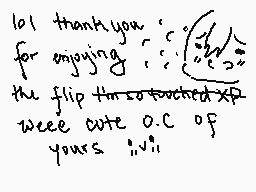 lol thank you
for enjoying
the flip I'm so touched xP
weee cute O.C of
yours ;;v;;